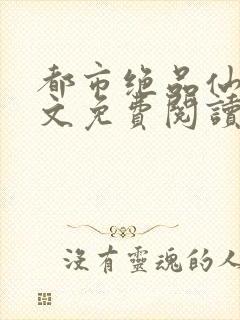 都市绝品仙
文免費閱讀
沒有靈魂的人